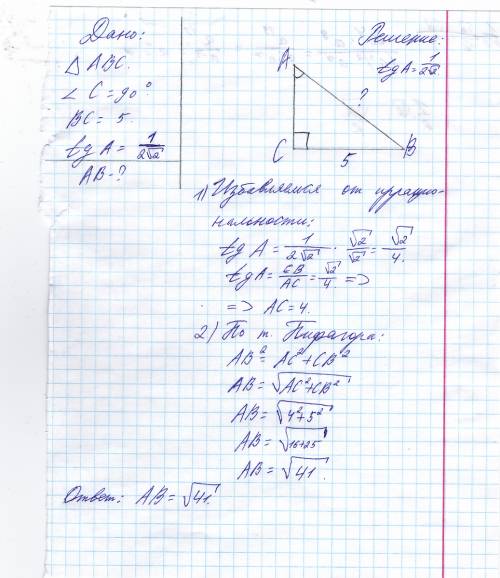 Дано:
△ ABC.
∠ C = 90°
BC = 5.
tg A = 1/2√2
AB - ?
Решение:
tg A = 1/2√2
A
?
C
5
B
1) Избавляемся от иррацио-
нальности:
tg A = 1/2√2 · √2/√2 = √2/4.
tg A = CB/AC = √2/4 =>
=> AC = 4.
2) По т. Пифагора:
AB² = AC² + CB²
AB = √AC² + CB²
AB = √4² + 5²
AB = √16+25
AB = √41.
Ответ: AB = √41.